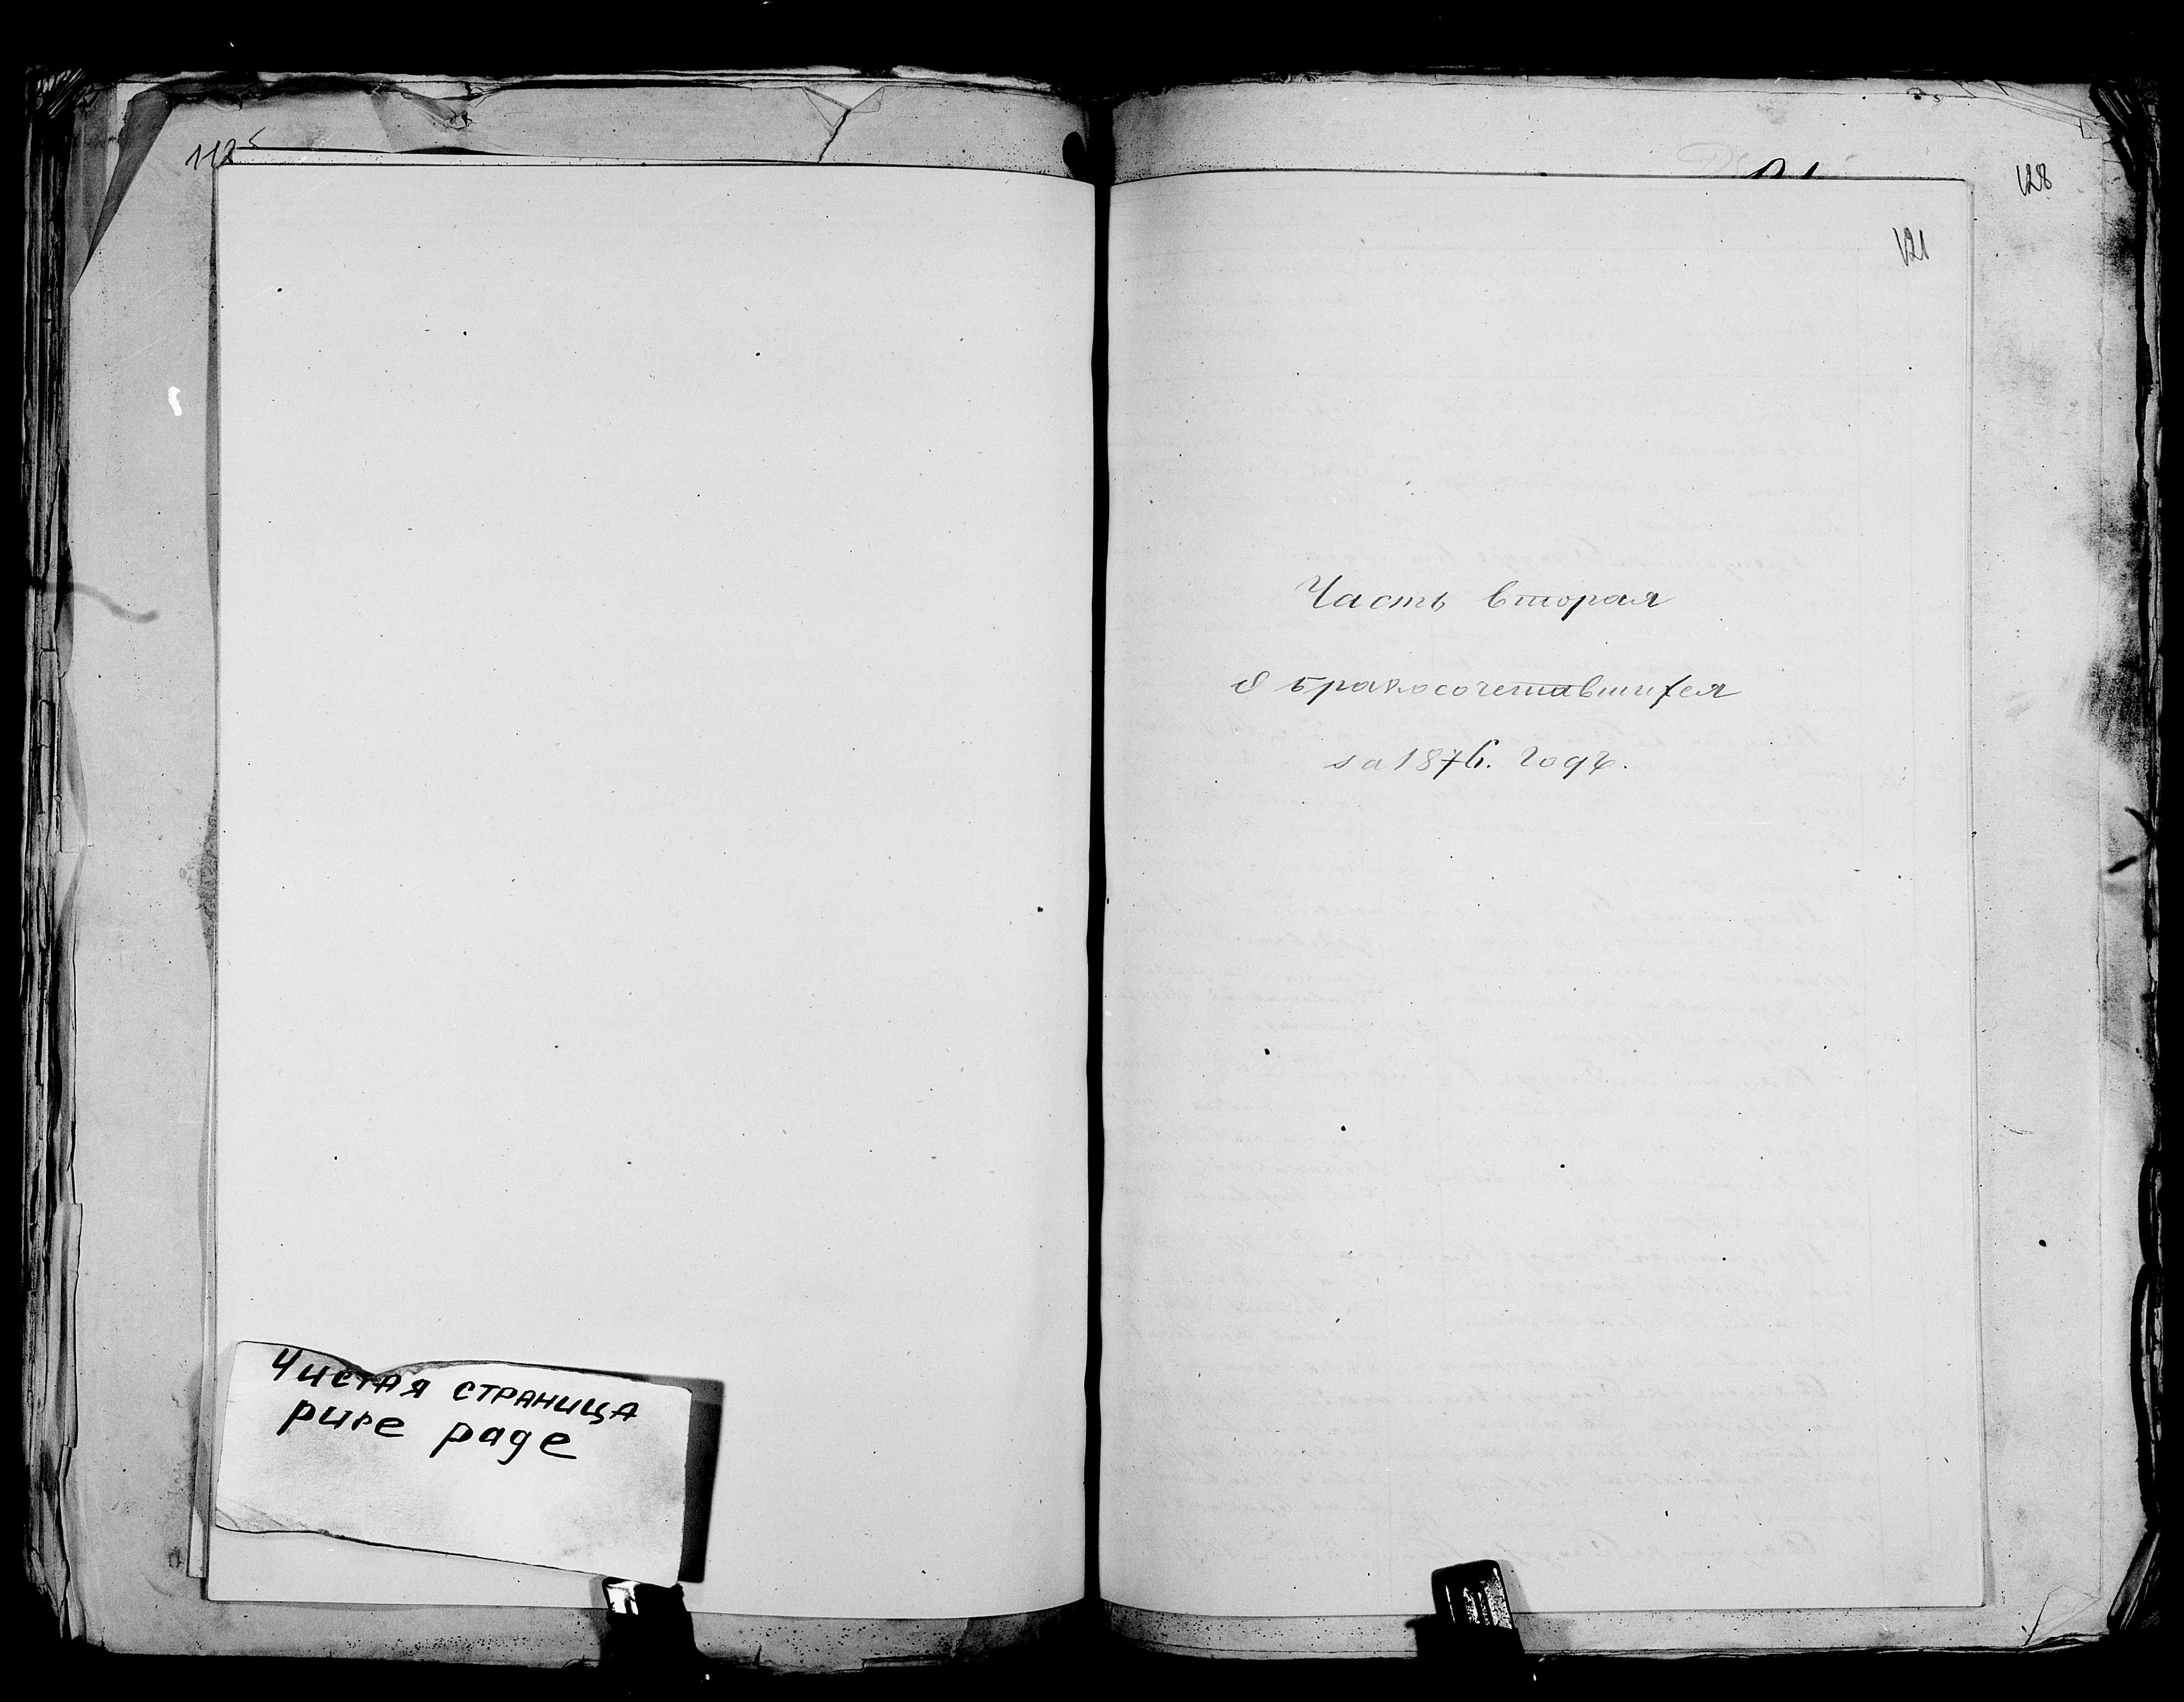 112
Чистая страница
pure page
128
121
Часть вторая
О бракосочетавшихся
за 1876. годъ.